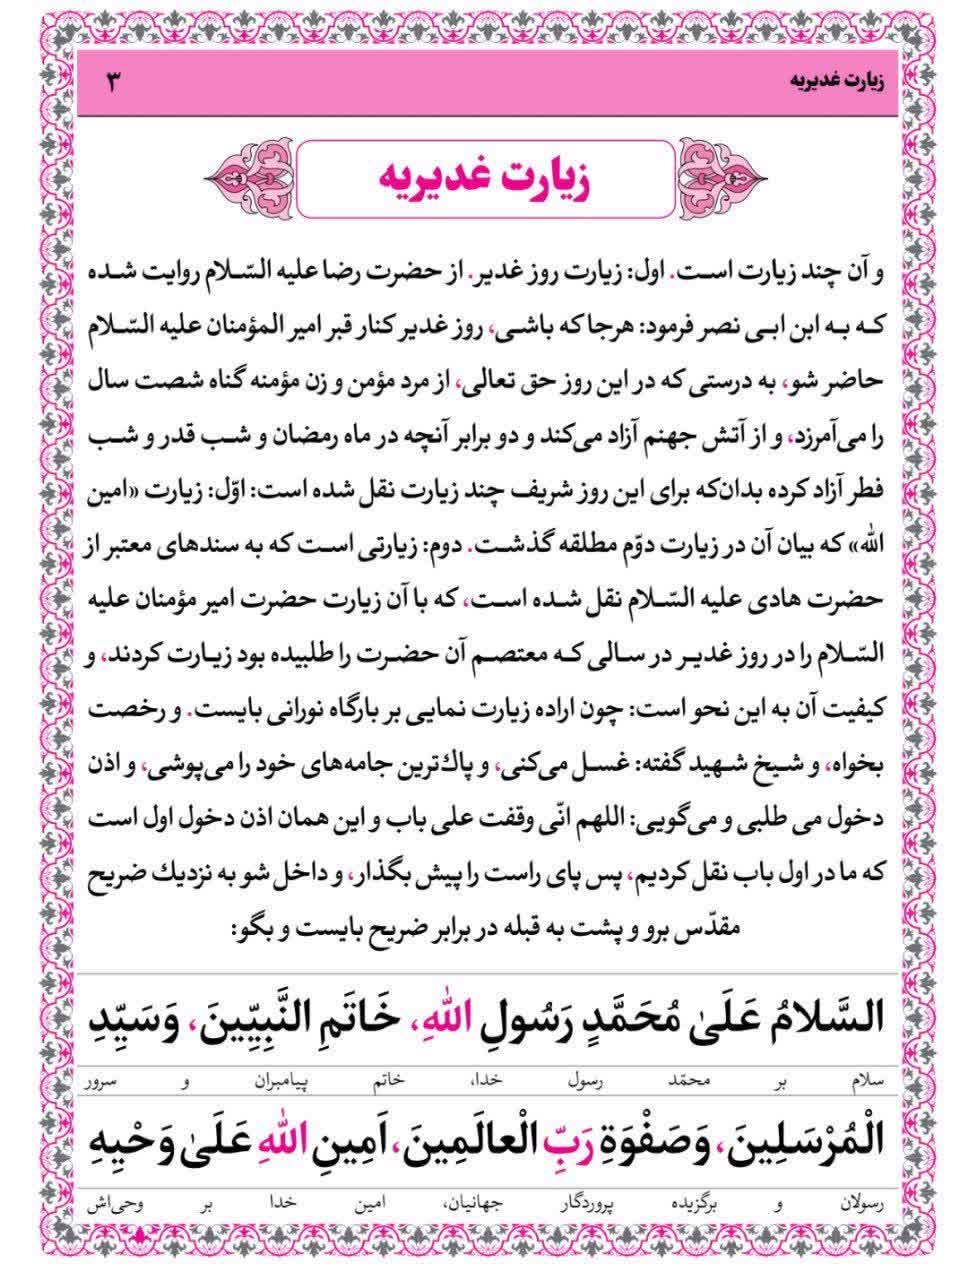 زیارت غدیریه ۳
زیارت غدیریه
و آن چند زیارت است. اول: زیارت روز غدیر. از حضرت رضا علیه السّلام روایت شده
که به ابن ابی نصر فرمود: هرجا که باشی، روز غدیر کنار قبر امیر المؤمنان علیه السّلام
حاضر شو، به درستی که در این روز حق تعالی، از مرد مؤمن و زن مؤمنه گناه شصت سال
را می‌آمرزد، و از آتش جهنم آزاد می‌کند و دو برابر آنچه در ماه رمضان و شب قدر و شب
فطر آزاد کرده بدان‌که برای این روز شریف چند زیارت نقل شده است: اوّل: زیارت «امین
الله» که بیان آن در زیارت دوّم مطلقه گذشت. دوم: زیارتی است که به سندهای معتبر از
حضرت هادی علیه السّلام نقل شده است، که با آن زیارت حضرت امیر مؤمنان علیه
السّلام را در روز غدیر در سالی که معتصم آن حضرت را طلبیده بود زیارت کردند، و
کیفیت آن به این نحو است: چون اراده زیارت نمایی بر بارگاه نورانی بایست. و رخصت
بخواه، و شیخ شهید گفته: غسل می‌کنی، و پاك‌ترین جامه‌های خود را می‌پوشی، و اذن
دخول می طلبی و می‌گویی: اللهم انّی وقفت علی باب و این همان اذن دخول اول است
که ما در اول باب نقل کردیم، پس پای راست را پیش بگذار، و داخل شو به نزدیك ضریح
مقدّس برو و پشت به قبله در برابر ضریح بایست و بگو:
السَّلامُ عَلَىٰ مُحَمَّدٍ رَسُولِ اللهِ، خَاتَمِ النَّبِيِّينَ، وَسَيِّدِ
سلام بر محمّد رسول خدا، خاتم پیامبران و سرور
الْمُرْسَلِينَ، وَصَفْوَةِ رَبِّ الْعالَمِينَ، اَمِينِ اللهِ عَلَىٰ وَحْيِهِ
رسولان و برگزیده پروردگار جهانیان، امین خدا بر وحی‌اش